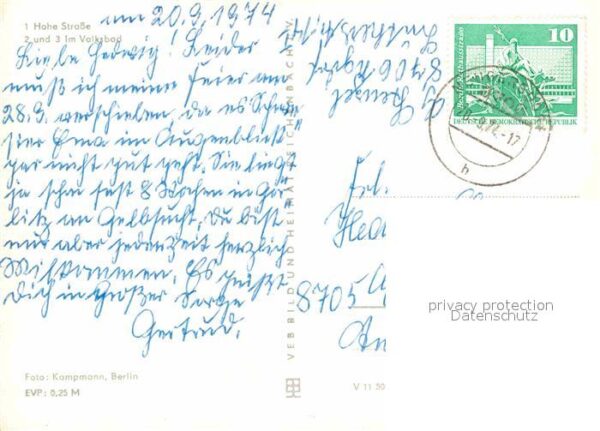 1 Hohe Straße
2 und 3 Im Volksbad
am 20.9.1974
Liebe Hedwig! Leider
muß ich meine Feier am
28.9. verschieben, da es Schwä-
gerin Erna im Augenblick
gar nicht gut geht. Sie liegt
ja schon fast 8 Wochen in Gör-
litz an Gelbsucht. Du bist
mir aber jederzeit herzlich
Willkommen. Es grüßt
Dich in großer Sorge
Gertrud.
Foto: Kampmann, Berlin
EVP: 0,25 M
VEB BILD UND HEIMAT REICHENBACH I. V.
8706
10
DEUTSCHE DEMOKRATISCHE REPUBLIK
74.-17
h
Frl.
8705
V 11 50
privacy protection
Datenschutz